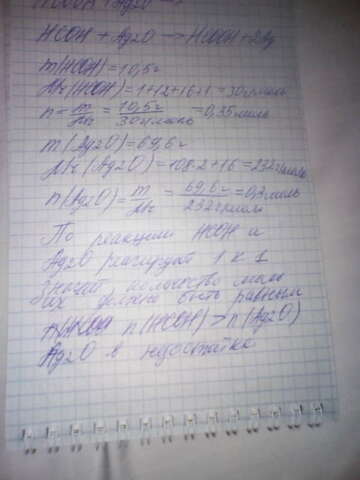 HCOH + Ag2O →
HCOH + Ag2O → HCOOH + 2Ag
m(HCOH) = 10,5г
Mr(HCOH) = 1+12+16+1 = 30г/моль
n = m/Mr = 10,5г/30г/моль = 0,35моль
m(Ag2O) = 69,6г
Mr(Ag2O) = 108·2+16 = 232г/моль
n(Ag2O) = m/Mr = 69,6г/232г/моль = 0,3моль
По реакции HCOH и
Ag2O реагируют 1 к 1
Значит количество моль
их должно быть равным
n(HCOH) > n(Ag2O)
Ag2O в недостатке